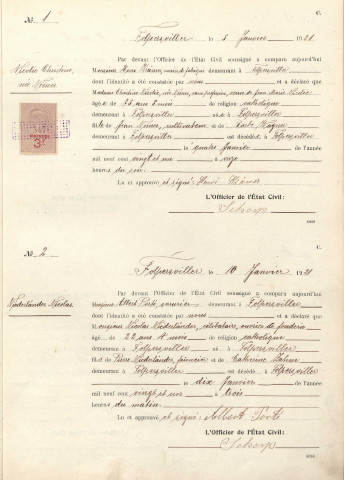 C.
№ 1
Folpersviller le 5 Janvier 1921
Par devant l'Officier de l'État Civil soussigné a comparu aujourd'hui
Monsieur Henri demeurant à Folpersviller
dont l'identité a été constatée par nous et a déclaré que
Madame Christine
âgé de ans de religion catholique
demeurant à Folpersviller né à Folpersviller
fille de Jean cultivateur et
demeurant à Folpersviller est décédée à Folpersviller
le quatre Janvier de l'année
mil neuf cent vingt et un à onze
heures du soir.
Lu et approuvé et signé: Henri
L'Officier de l'État Civil:
Schorp
C.
№ 2
Folpersviller le 10 Janvier 1921
Niederländer Nicolas.
Par devant l'Officier de l'État Civil soussigné a comparu aujourd'hui
Monsieur Albert demeurant à Folpersviller
dont l'identité a été constatée par nous et a déclaré que
Monsieur Nicolas Niederländer, célibataire, ouvrier de fonderie
âgé de 22 ans de religion catholique
demeurant à Folpersviller né à Folpersviller
fils de Pierre Niederländer, et de Catherine
demeurant à Folpersviller est décédé à Folpersviller
le dix Janvier de l'année
mil neuf cent vingt et un à trois
heures du matin.
Lu et approuvé et signé: Albert
L'Officier de l'État Civil:
Schorp